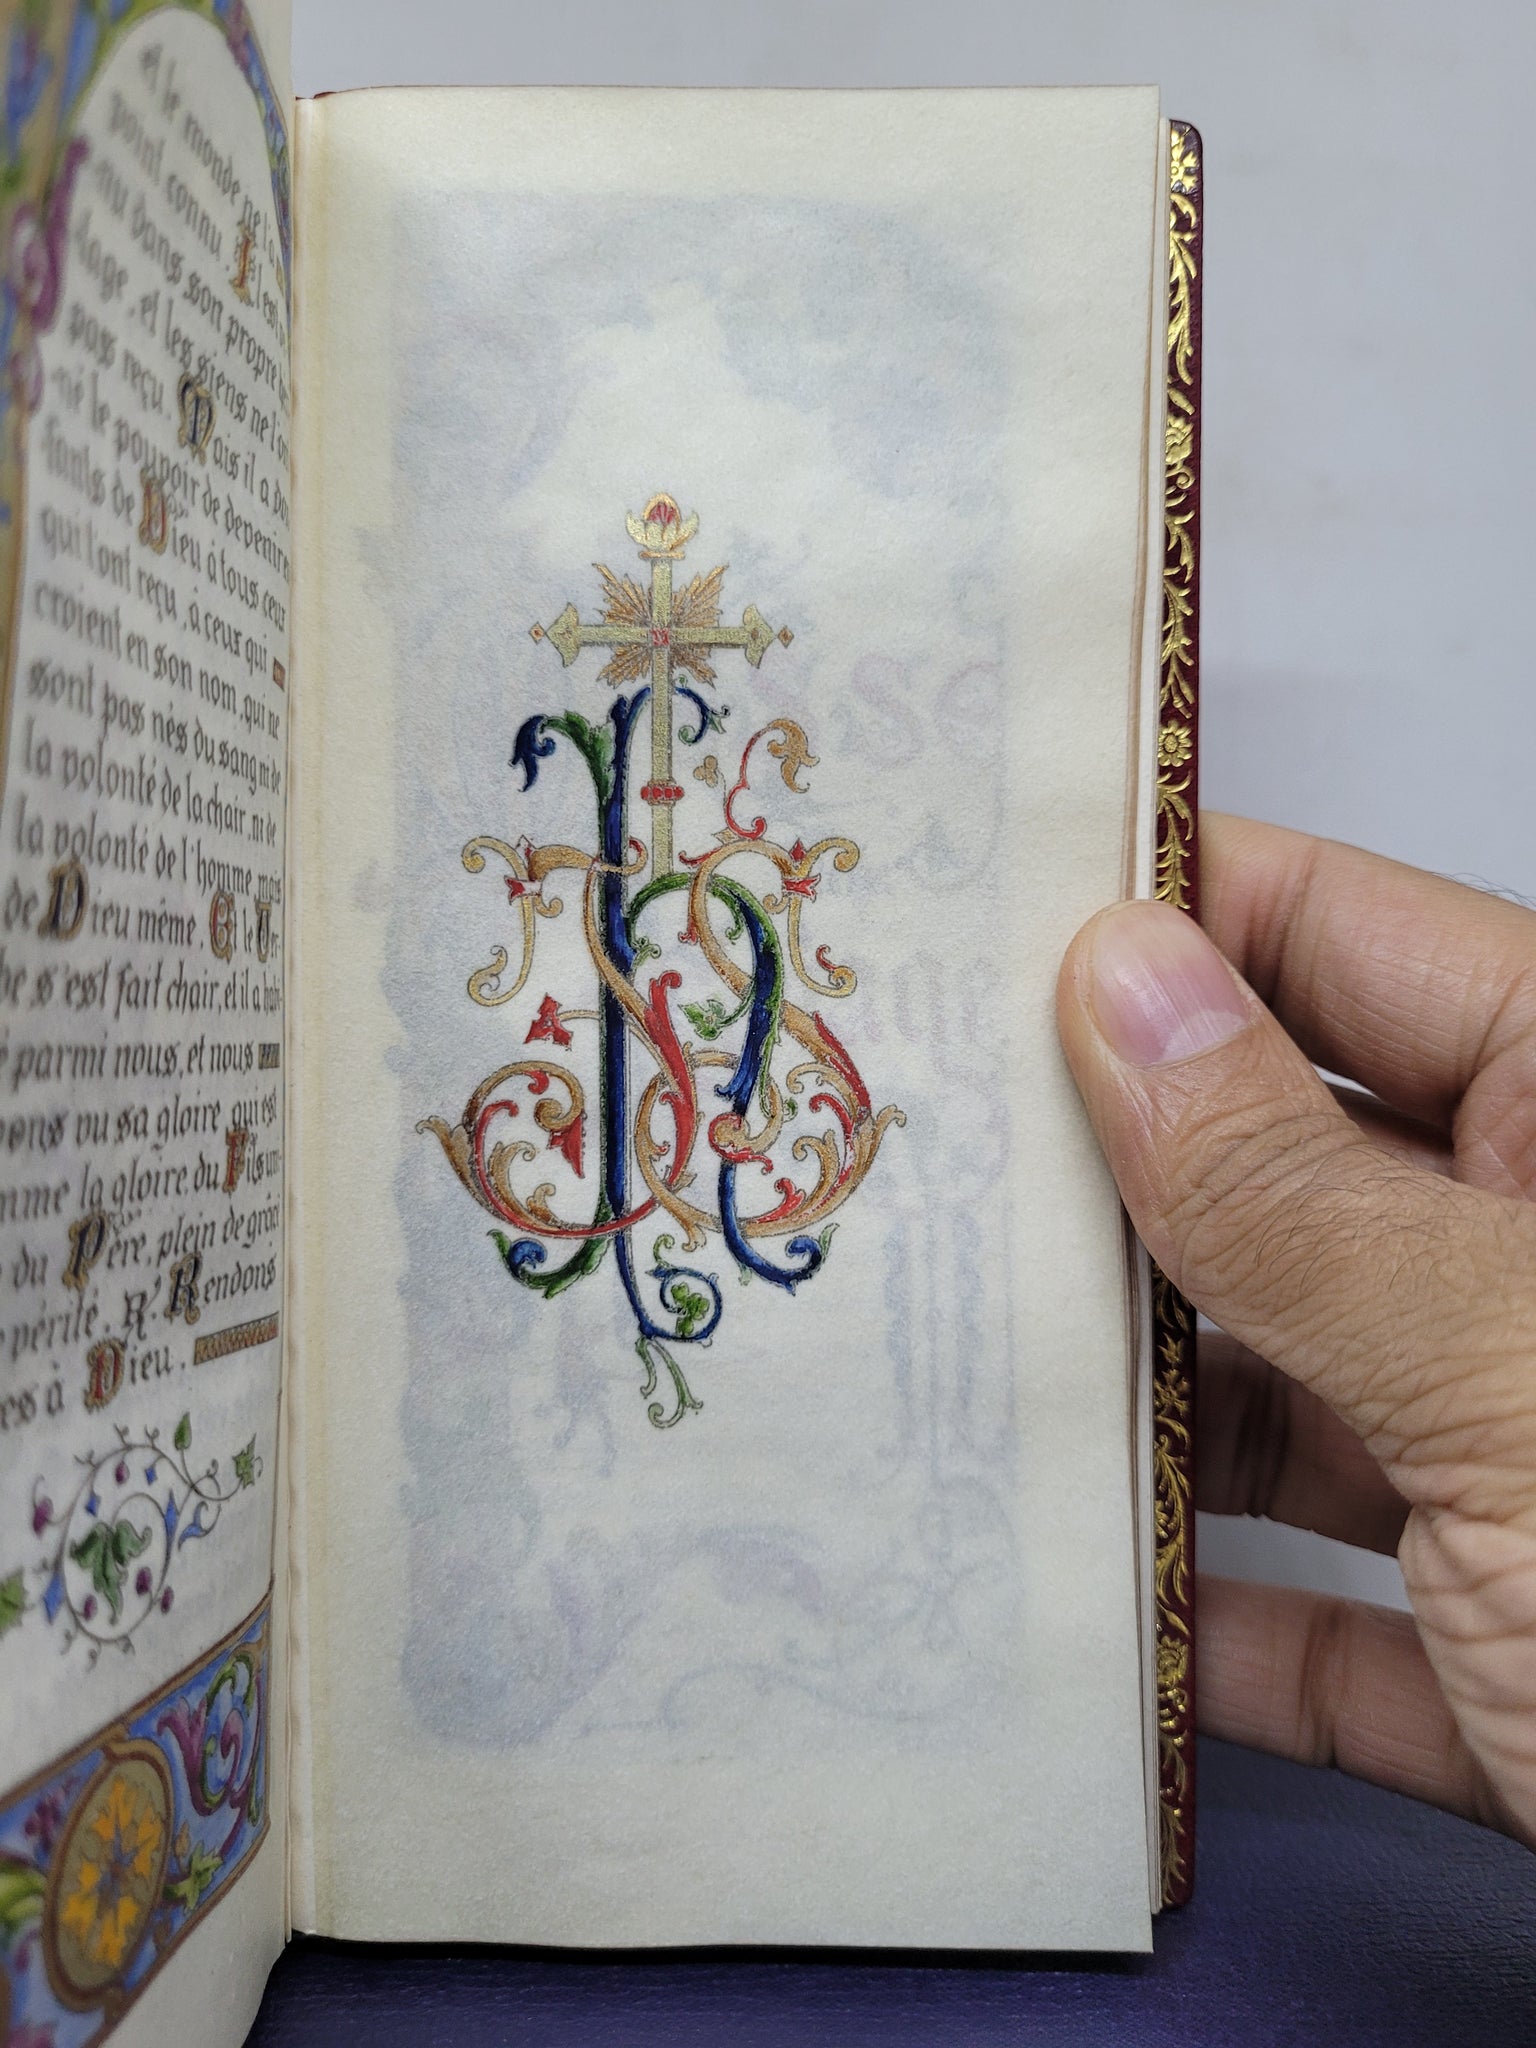 Et le monde ne l'a
point connu. Il est ve-
nu dans son propre hé-
ritage, et les siens ne l'ont
pas reçu. Mais il a don-
né le pouvoir de devenir en-
fants de Dieu à tous ceux
qui l'ont reçu, à ceux qui
croient en son nom, qui ne
sont pas nés du sang ni de
la volonté de la chair, ni de
la volonté de l'homme, mais
de Dieu même. Et le Ver-
be s'est fait chair, et il a habi-
é parmi nous, et nous
vons vu sa gloire, qui est
mme la gloire du Fils un-
du Père, plein de grâce
vérité. R. Rendons
es à Dieu.
IHS